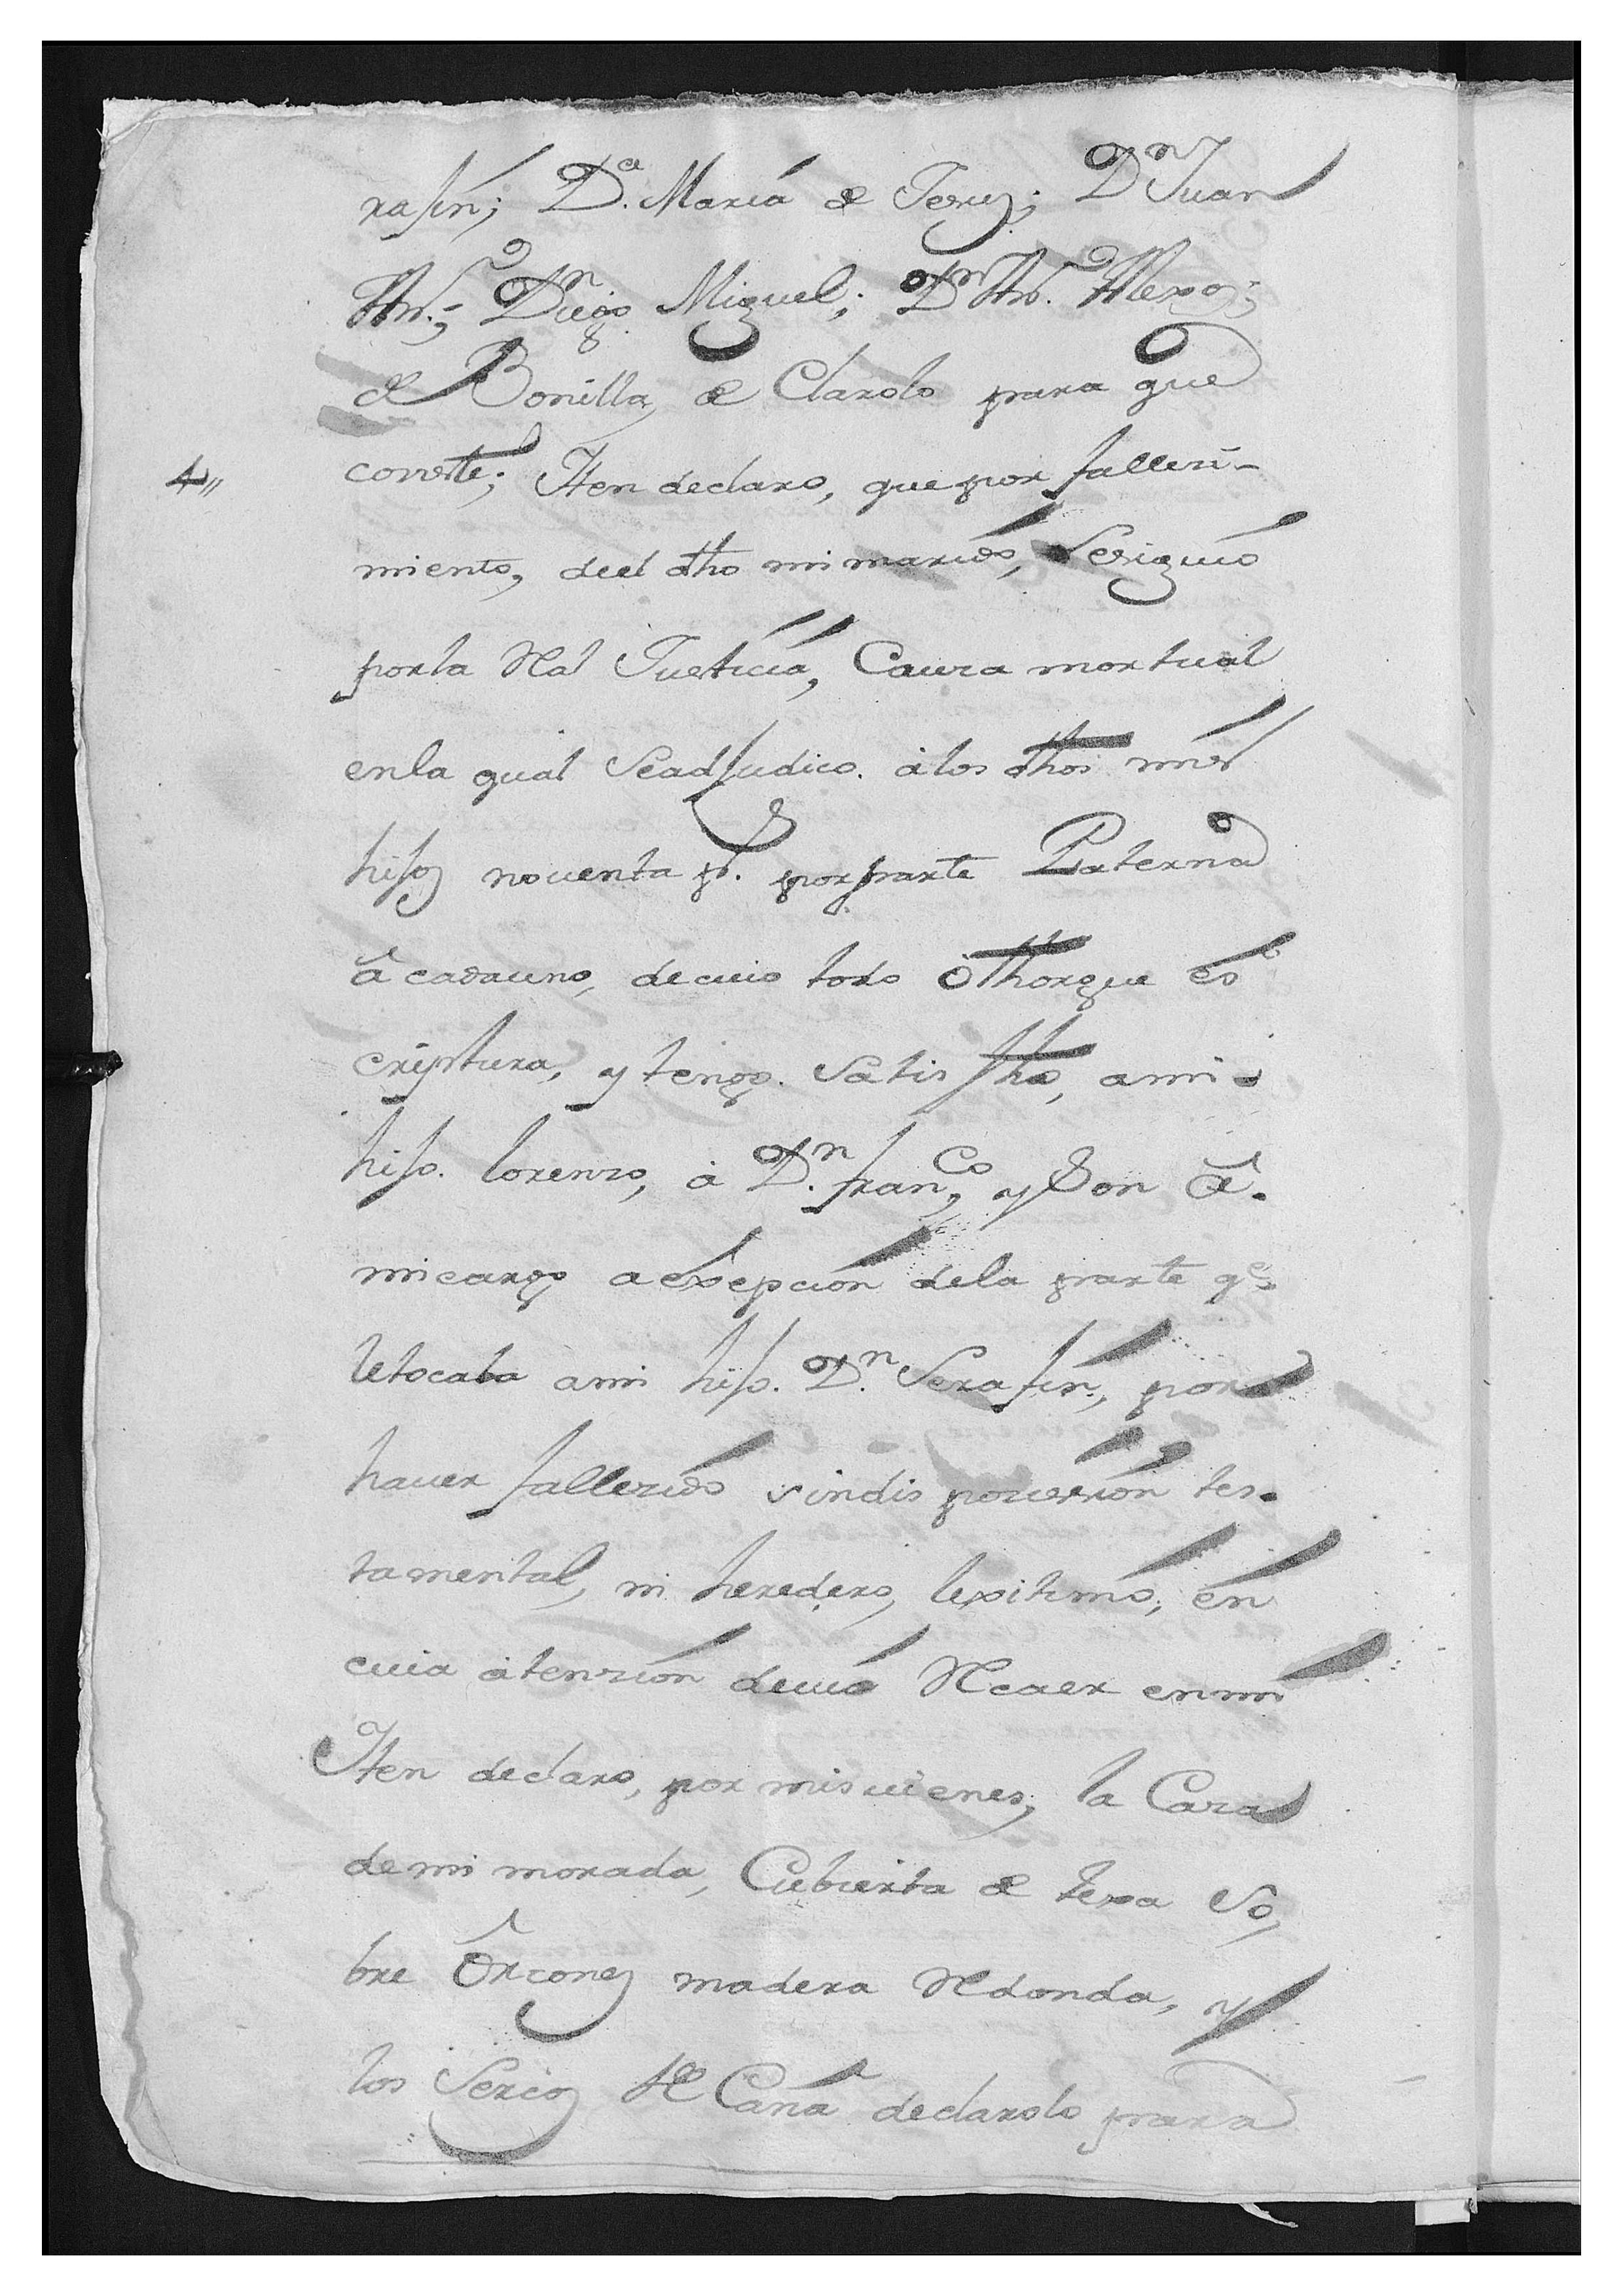 rasin; D.ª Maria de Jesus; D.n Juan
Ant.º; Diego Miguel; D.n Ant.º Alexo;
de Bonilla, declarolo para que
conste;
4,, Iten declaro, que por falleci-
miento, del dho mi marido, Sesiguió
porla Ral Justicia, Causa mortual
enla qual Seadjudico. álos dhos mis
hijos noventa p.s porparte Paterna
â cadauno, decuio todo óthorgue es
criptura, y tengo. Satis fho, ami
hijo. lorenzo, á D.n fran.co, y Son â.
micargo aexsepcion dela parte q.e
letocaba ami hijo. D.n Serafin, por
haver fallecido sindis posicion tes.
tamental, ni heredero, lexitimo; en
cuia átension devió Recaer enmi
Iten declaro, por misvienes, la Casa
demi morada, Cubierta de texa So,
bre Ôrcones madera Redonda, y
los Sercos de Caña declarolo para